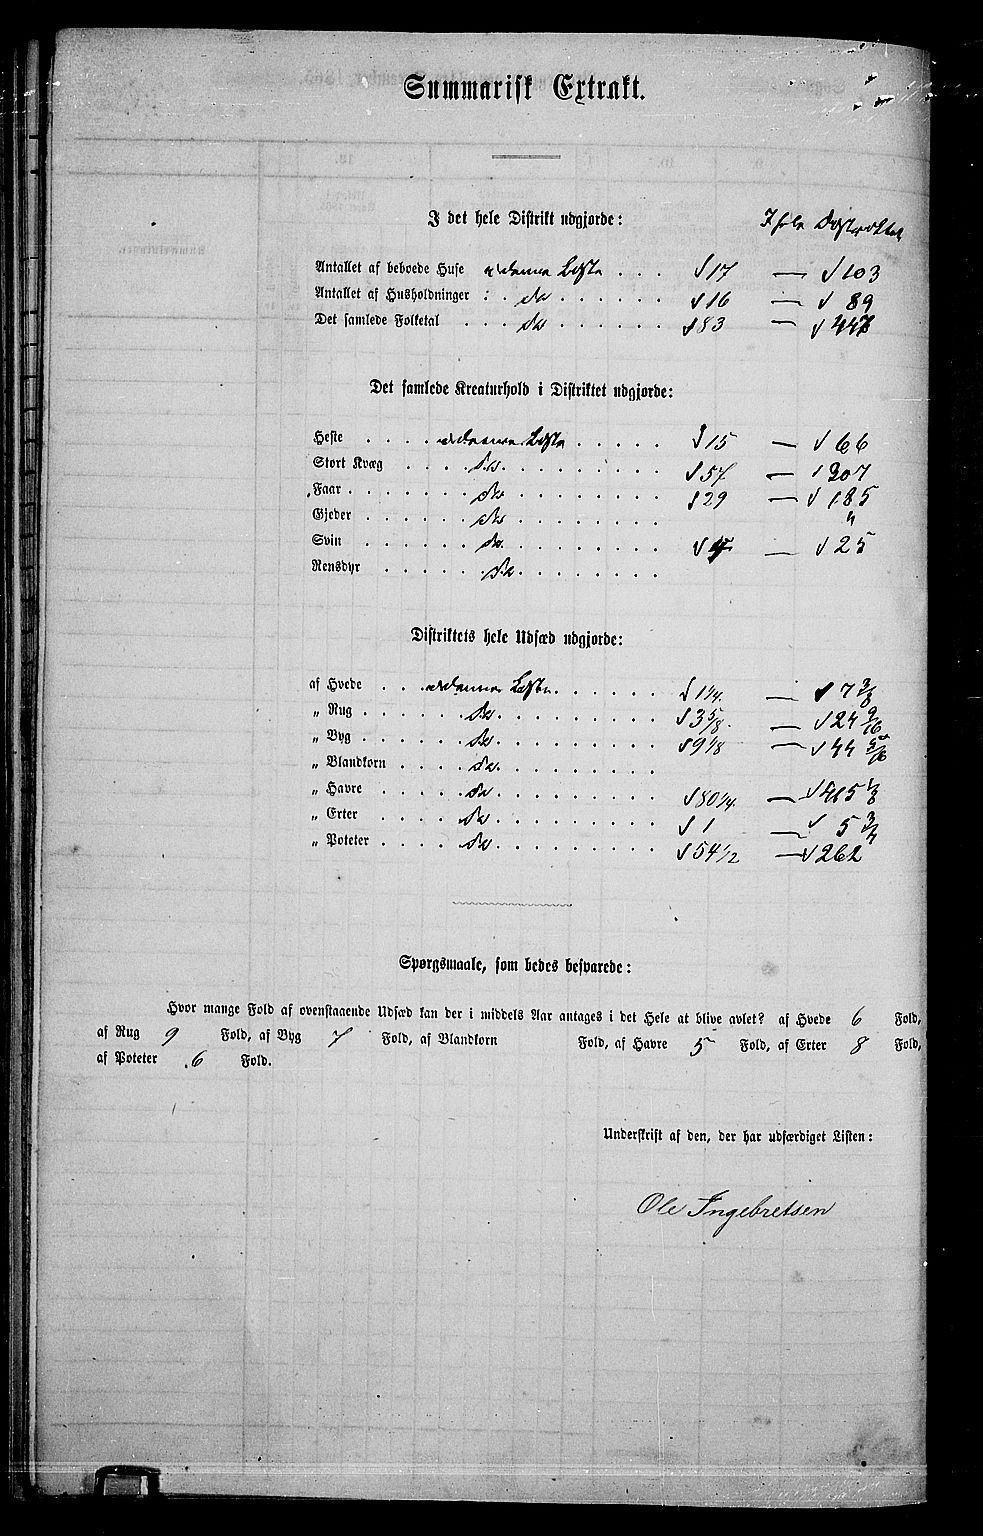 Summarisk Extrakt.
I det hele Distrikt udgjorde: I hele Distriktet
Antallet af beboede Huse denne Liste . . . 17 — 103
Antallet af Husholdninger : do . . . . . . 16 — 89
Det samlede Folketal . . . do . . . . . . 83 — 447
Det samlede Kreaturhold i Distriktet udgjorde:
Heste . . . . denne Liste . . . . . 15 — 66
Stort Kvæg . . . . do . . . . . . . 57 — 307
Faar . . . . . . do . . . . . . . 29 — 185
Gjeder . . . . . do . . . . . . . "
Svin . . . . . do . . . . . . . — 25
Rensdyr . . . . . . do . . . . . . .
Distriktets hele Udsæd udgjorde:
af Hvede . . . denne Liste . . . . . 1 1/4 — 7 3/8
„ Rug . . . . do . . . . . . . 3 5/8 — 24 9/16
„ Byg . . . . do . . . . . . . 9 1/8 — 44 5/16
„ Blandkorn . . . . do . . . . . . .
„ Havre . . . . do . . . . . . . 80 1/4 — 415 1/8
„ Erter . . . . do . . . . . . . 1 — 5 3/4
„ Poteter . . . . do . . . . . . . 54 1/2 — 262
Spørgsmaale, som bedes besvarede:
Hvor mange Fold af ovenstaaende Udsæd kan der i middels Aar antages i det Hele at blive avlet? af Hvede 6 Fold,
af Rug 9 Fold, af Byg 7 Fold, af Blandkorn Fold, af Havre 5 Fold, af Erter 8 Fold,
af Poteter 6 Fold.
Underskrift af den, der har udfærdiget Listen:
Ole Ingebretsen